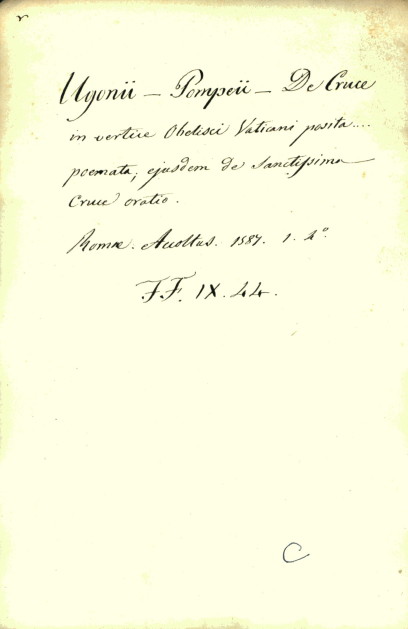 Ugonii — Pompeii — De Cruce
in vertice Obelisci Vaticani posita....
poemata; ejusdem de Sanctissima
Cruce oratio.
Romæ. Accoltus. 1587. 1. 4°.
FF. IX. 44.
C